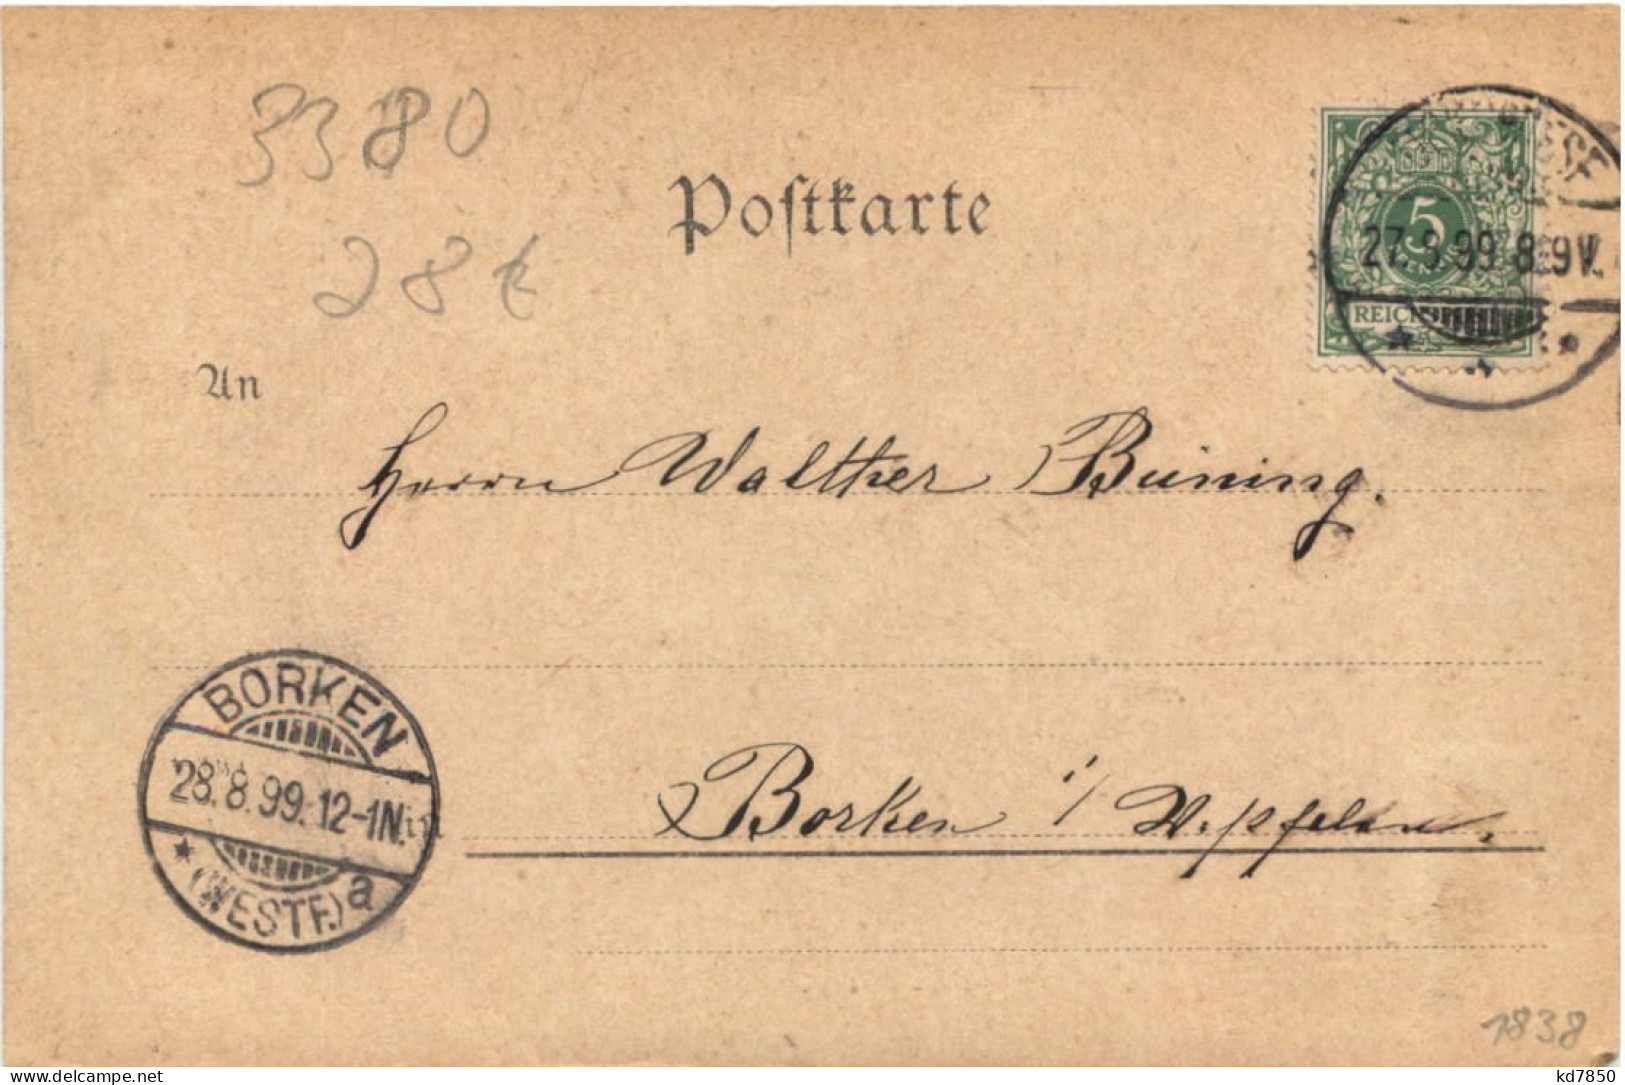 3380
28 €
Postkarte
5
REICHS
27.8.99. 8-9V.
An
Herrn Walther Büning.
BORKEN
28.8.99. 12-1N.
(WESTF.) a
in
Borken i/ Westfalen.
1838
kd7850